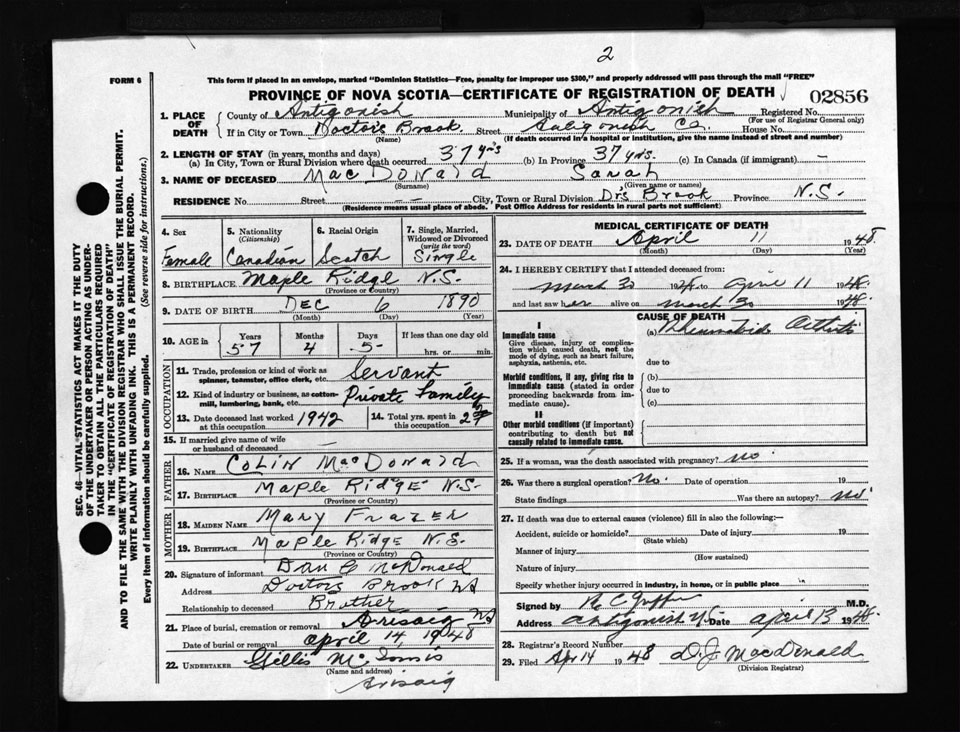 2
FORM 6
This form if placed in an envelope, marked "Dominion Statistics—Free, penalty for improper use $300," and properly addressed will pass through the mail "FREE"
PROVINCE OF NOVA SCOTIA—CERTIFICATE OF REGISTRATION OF DEATH
02856
1. PLACE OF DEATH County of Antigonish Municipality of Antigonish Registered No.
(For use of Registrar General only)
If in City or Town Doctors Brook Street Antigonish Co. House No.
(Name) (If death occurred in a hospital or institution, give the name instead of street and number)
2. LENGTH OF STAY (in years, months and days)
(a) In City, Town or Rural Division where death occurred 37 yrs (b) In Province 37 yrs. (c) In Canada (if immigrant) —
3. NAME OF DECEASED MacDonald Sarah
(Surname) (Given name or names)
RESIDENCE No. Street -- City, Town or Rural Division Drs Brook Province N.S.
(Residence means usual place of abode. Post Office Address for residents in rural parts not sufficient)
4. Sex Female
5. Nationality (Citizenship) Canadian
6. Racial Origin Scotch
7. Single, Married, Widowed or Divorced (write the word) Single
8. BIRTHPLACE Maple Ridge N.S.
(Province or Country)
9. DATE OF BIRTH Dec 6 1890
(Month) (Day) (Year)
10. AGE in Years 57 Months 4 Days 5 If less than one day old hrs. or min.
OCCUPATION
11. Trade, profession or kind of work as spinner, teamster, office clerk, etc. Servant
12. Kind of industry or business, as cotton-mill, lumbering, bank, etc. Private Family
13. Date deceased last worked at this occupation 1942
14. Total yrs. spent in this occupation
15. If married give name of wife or husband of deceased —
FATHER
16. NAME Colin MacDonald
17. BIRTHPLACE Maple Ridge N.S.
(Province or Country)
MOTHER
18. MAIDEN NAME Mary Frazer
19. BIRTHPLACE Maple Ridge N.S.
(Province or Country)
20. Signature of informant Dan C McDonald
Address Doctors Brook NS
Relationship to deceased Brother
21. Place of burial, cremation or removal Arisaig NS
Date of burial or removal April 14, 1948
22. UNDERTAKER Gillis
(Name and address)
Arisaig
MEDICAL CERTIFICATE OF DEATH
23. DATE OF DEATH April 11 1948.
(Month) (Day) (Year)
24. I HEREBY CERTIFY that I attended deceased from:
March 30 1948. to April 11 1948.
and last saw her alive on March 30 1948.
CAUSE OF DEATH
I
Immediate cause (a) Rheumatoid Arthritis
Give disease, injury or complication which caused death, not the mode of dying, such as heart failure, asphyxia, asthenia, etc.
due to
Morbid conditions, if any, giving rise to immediate cause (stated in order proceeding backwards from immediate cause).
(b)
due to
(c)
II
Other morbid conditions (if important) contributing to death but not causally related to immediate cause.
25. If a woman, was the death associated with pregnancy? no.
26. Was there a surgical operation? No. Date of operation 19
State findings Was there an autopsy? no
27. If death was due to external causes (violence) fill in also the following:—
Accident, suicide or homicide? Date of injury 19
(State which)
Manner of injury
(How sustained)
Nature of injury
Specify whether injury occurred in industry, in home, or in public place
Signed by M.D.
Address Antigonish NS Date April 13 1948.
28. Registrar's Record Number
29. Filed Apr 14 1948 D.J. MacDonald
(Division Registrar)
SEC. 46—VITAL STATISTICS ACT MAKES IT THE DUTY
OF THE UNDERTAKER OR PERSON ACTING AS UNDER-
TAKER TO OBTAIN ALL THE PARTICULARS REQUIRED
IN THE "CERTIFICATE OF REGISTRATION OF DEATH"
AND TO FILE THE SAME WITH THE DIVISION REGISTRAR WHO SHALL ISSUE THE BURIAL PERMIT.
WRITE PLAINLY WITH UNFADING INK. THIS IS A PERMANENT RECORD.
Every item of information should be carefully supplied. (See reverse side for instructions.)